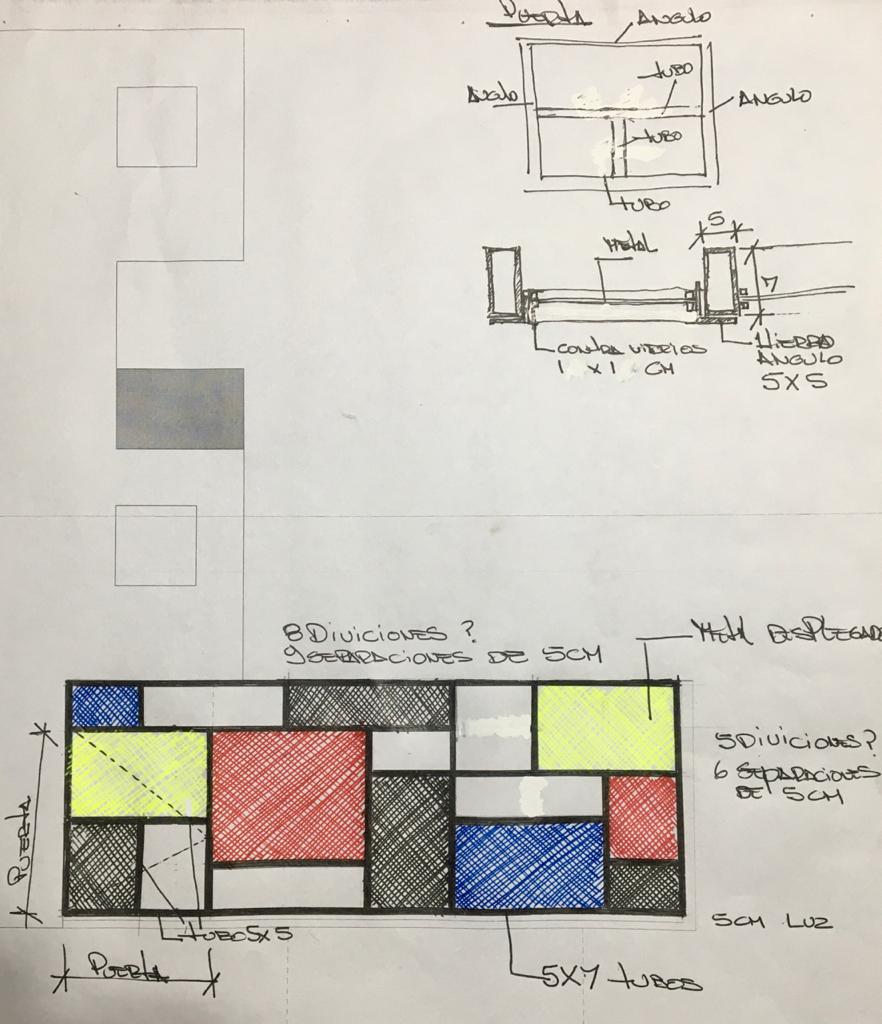 PUERTA
ANGULO
TUBO
ANGULO
ANGULO
TUBO
TUBO
5
METAL
7
CONTRA VIDRIOS
1 X 1 CM
HIERRO
ANGULO
5X5
8 DIVICIONES ?
9 SEPARACIONES DE 5CM
METAL DESPLEGAD
5 DIVICIONES ?
6 SEPARACIONES
DE 5CM
PUERTA
5CM LUZ
TUBO 5X5
PUERTA
5X7 TUBOS